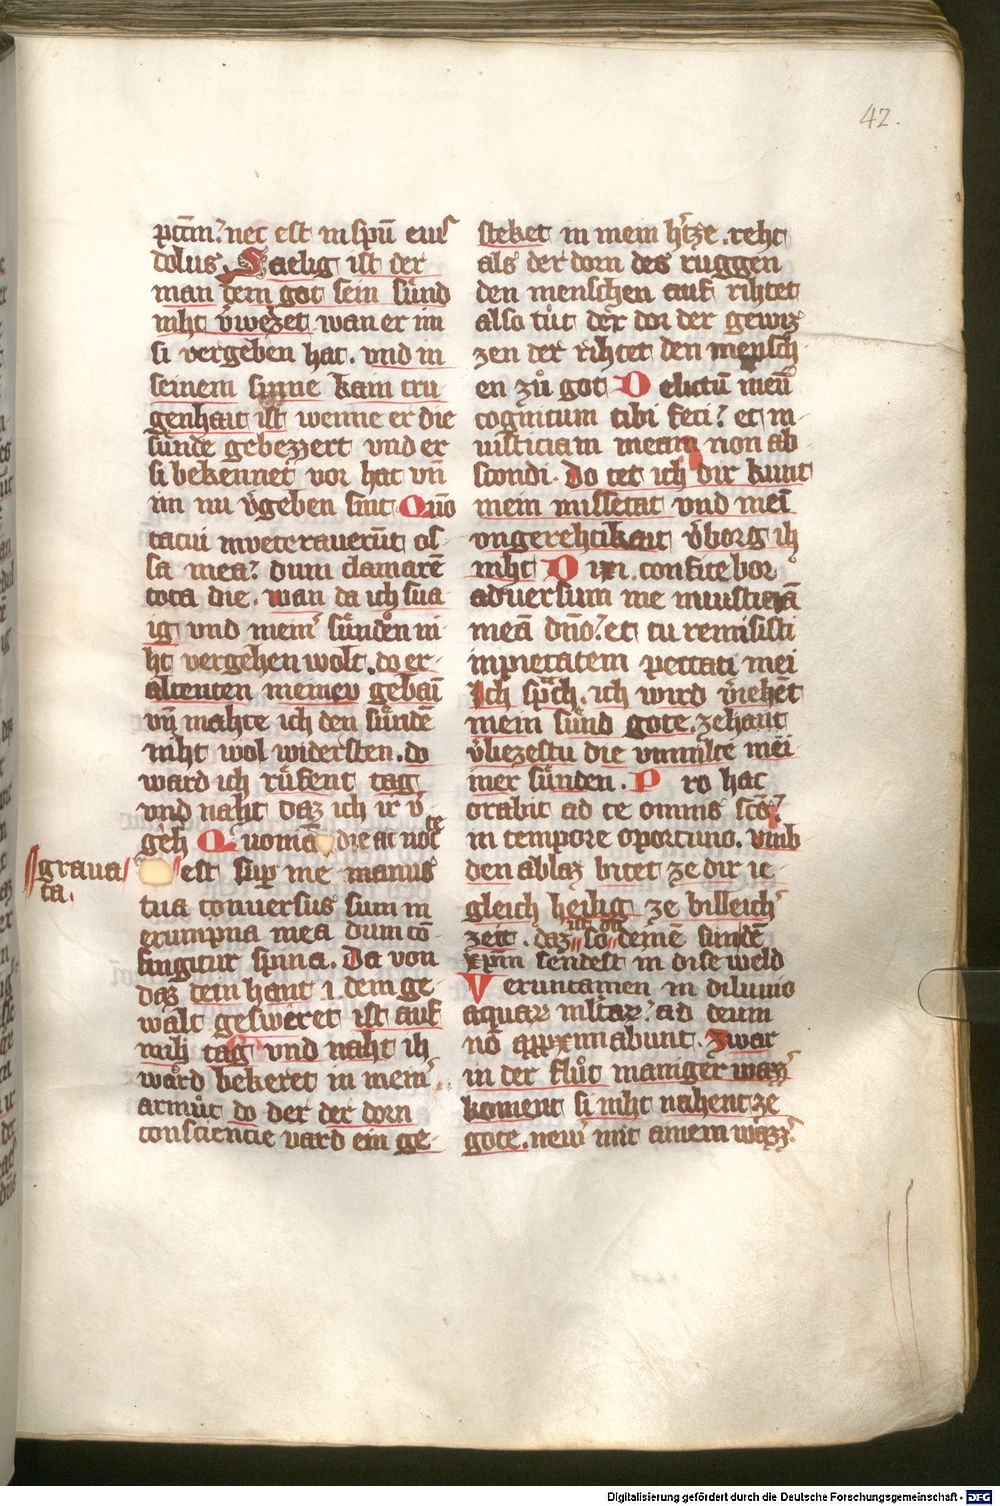 42.
pctm̄. nec est in spū eius
dolus. Saelig ist der
man dem got sein sünd
niht v̄weizet wan er im
si vergeben hat. vnd in
seinem sinne kam tru
genhait ist wenne er die
sunde gebezzert vnd er
si bekennet vor hat vn̄
im nu v̄geben sint Quō
tacui inveterauerūt os
sa mea. dum clamarē
tota die. wan da ich sua
ig vnd mein sünden ni
ht vergehen wolt. do er
altenten meinev gebai
vn̄ mahte ich den sündē
niht wol widersten. do
ward ich rüfent tag
vnd naht daz ich ir v̄
geh Quoniā die ac noc
te
graua
ta.
est sup me manus
tua conuersus sum in
erumpna mea dum cō
fingitur spina. Da von
daz dein hant i. dem ge
walt geswëret ist auf
mih tag vnd naht ih
ward bekeret in mein
armůt do der der dorn
consciencie vard ein ge
steket in mein h'tze. reht
als der dorn des ruggen
den menschen auf rihtet
also tůt der dor der gewiz
zen der rihtet den mensch
en zů got Delictū meū
cognitum tibi feci. et in
iusticiam meam non ab
scondi. Do tet ich dir kunt
mein missetat vnd mei
vngerehtikait v̄borg ih
niht Dixi. confitebor
aduersum me iniusticiā
meā dn̄o. et tu remisisti
impietatem peccati mei
Ich sp̄ch. ich wird v̄iehēt
mein sünd gote. zehant
v̄liezestu die vnmilte mei
ner sünden. Pro hac
orabit ad te omnis sc̄s
in tempore oportuno. vmb
den ablaz bitet ze dir ie
gleich heilig ze billeich
zeit. daz so deinē sundē
xp̄m sendest in dise weld
Veruntamen in diluuio
aquaꝝ mltaꝝ. ad deum
nō appximabunt. Zwar
in der flůt maniger wazz
koment si niht nahent ze
gote. new mit ainem wazz
Digitalisierung gefördert durch die Deutsche Forschungsgemeinschaft - DFG